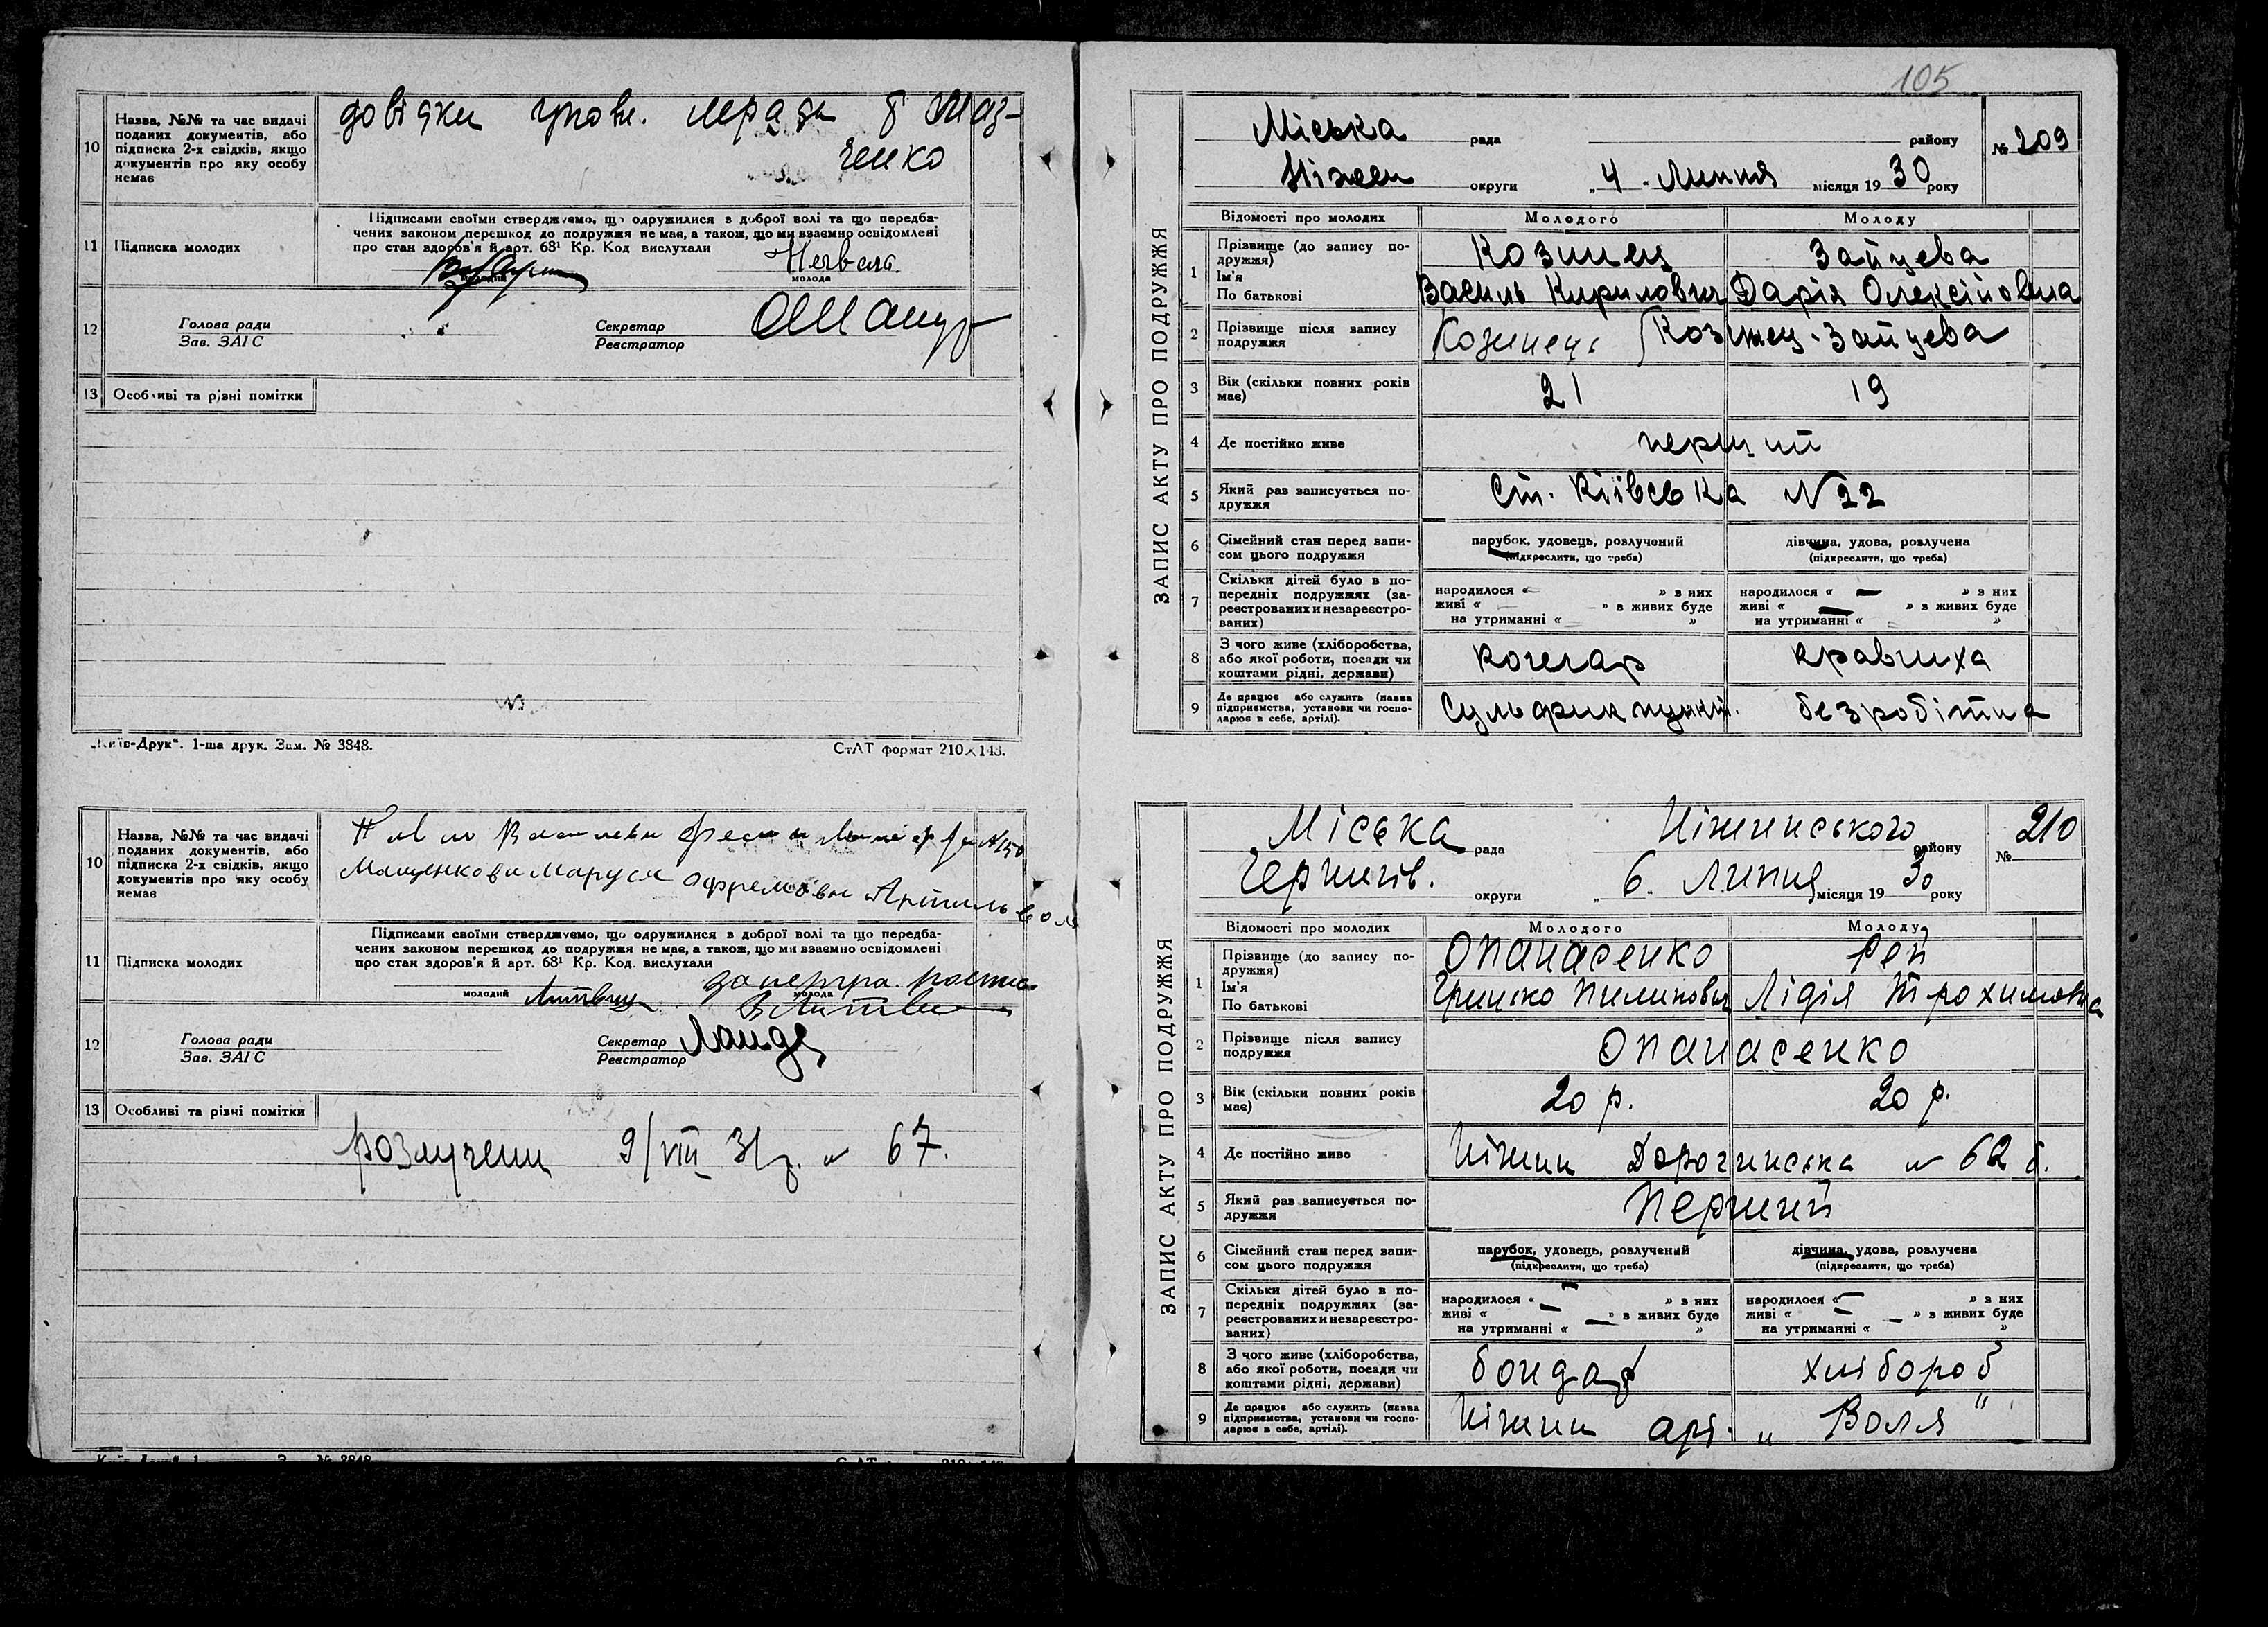 10
Назва, №№ та час видачі
поданих документів, або
підписка 2-х свідків, якщо
документів про яку особу
немає
довідки
ченко
11
Підписка молодих
Підписами своїми стверджуємо, що одружилися з доброї волі та що передба-
чених законом перешкод до подружжя не має, а також, що ми взаємно освідомлені
про стан здоров'я й арт. 68¹ Кр. Код вислухали
молода
12
Голова ради
Зав. ЗАГС
Секретар
Реєстратор
13
Особливі та різні помітки
„Київ-Друк“. 1-ша друк. Зам. № 3848.
СтАТ формат 210×148.
10
Назва, №№ та час видачі
поданих документів, або
підписка 2-х свідків, якщо
документів про яку особу
немає
№150
Маруся
11
Підписка молодих
Підписами своїми стверджуємо, що одружилися з доброї волі та що передба-
чених законом перешкод до подружжя не має, а також, що ми взаємно освідомлені
про стан здоров'я й арт. 68¹ Кр. Код. вислухали
молодий
молода
12
Голова ради
Зав. ЗАГС
Секретар
Реєстратор
Ланде
13
Особливі та рівні помітки
розлучени 9/VIII 31 р. № 67.
105
ЗАПИС АКТУ ПРО ПОДРУЖЖЯ
Міська рада району № 209
Ніжен округи „4“ Липня місяця 1930 року
Відомості про молодих Молодого Молоду
1 Прізвище (до запису по-
дружжя)
Ім'я
По батькові
Козинец Зайцева
Василь Кирилович Дарія Олексіївна
2 Прізвище після запису
подружжя
Козинець Козинец-Зайцева
3 Вік (скільки повних років
має)
21 19
4 Де постійно живе
перший
5 Який раз записується по-
дружжя
ст. Київська N 22
6 Сімейний стан перед запи-
сом цього подружжя
парубок, удовець, розлучений
(підкреслити, що треба)
дівчина, удова, розлучена
(підкреслити, що треба)
7 Скільки дітей було в по-
передніх подружжях (за-
реєстрованих и незареєстро-
ваних)
народилося « » з них
живі « » в живих буде
на утриманні « »
народилося « — » з них
живі « — » в живих буде
на утриманні « »
8 З чого живе (хліборобства,
або якої роботи, посади чи
коштами рідні, держави)
кочегар кравчиха
9 Де працює або служить (назва
підприємства, установи чи госпо-
дарює в себе, артілі).
безробітна
ЗАПИС АКТУ ПРО ПОДРУЖЖЯ
Міська рада Ніжинського району № 210
Чернигів. округи „6. Липня місяця 1930 року
Відомості про молодих Молодого Молоду
1 Прізвище (до запису по-
дружжя)
Ім'я
По батькові
Опанасенко Рей
Грицько Пилипович Лідія Трохимовна
2 Прізвище після запису
подружжя
Опанасенко
3 Вік (скільки повних років
має)
20 р. 20 р.
4 Де постійно живе
Ніжин Дорогинська № 62 б.
5 Який раз записується по-
дружжя
Перший
6 Сімейний стан перед запи-
сом цього подружжя
парубок, удовець, розлучений
(підкреслити, що треба)
дівчина, удова, розлучена
(підкреслити, що треба)
7 Скільки дітей було в по-
передніх подружжях (за-
реєстрованих и незареєстро-
ваних)
народилося « — » з них
живі « — » в живих буде
на утриманні « — »
народилося « — » з них
живі « — » в живих буде
на утриманні « — »
8 З чого живе (хліборобства,
або якої роботи, посади чи
коштами рідні, держави)
бондар хлібороб
9 Де працює або служить (назва
підприємства, установи чи госпо-
дарює в себе, артілі).
Ніжин арт. „Воля"